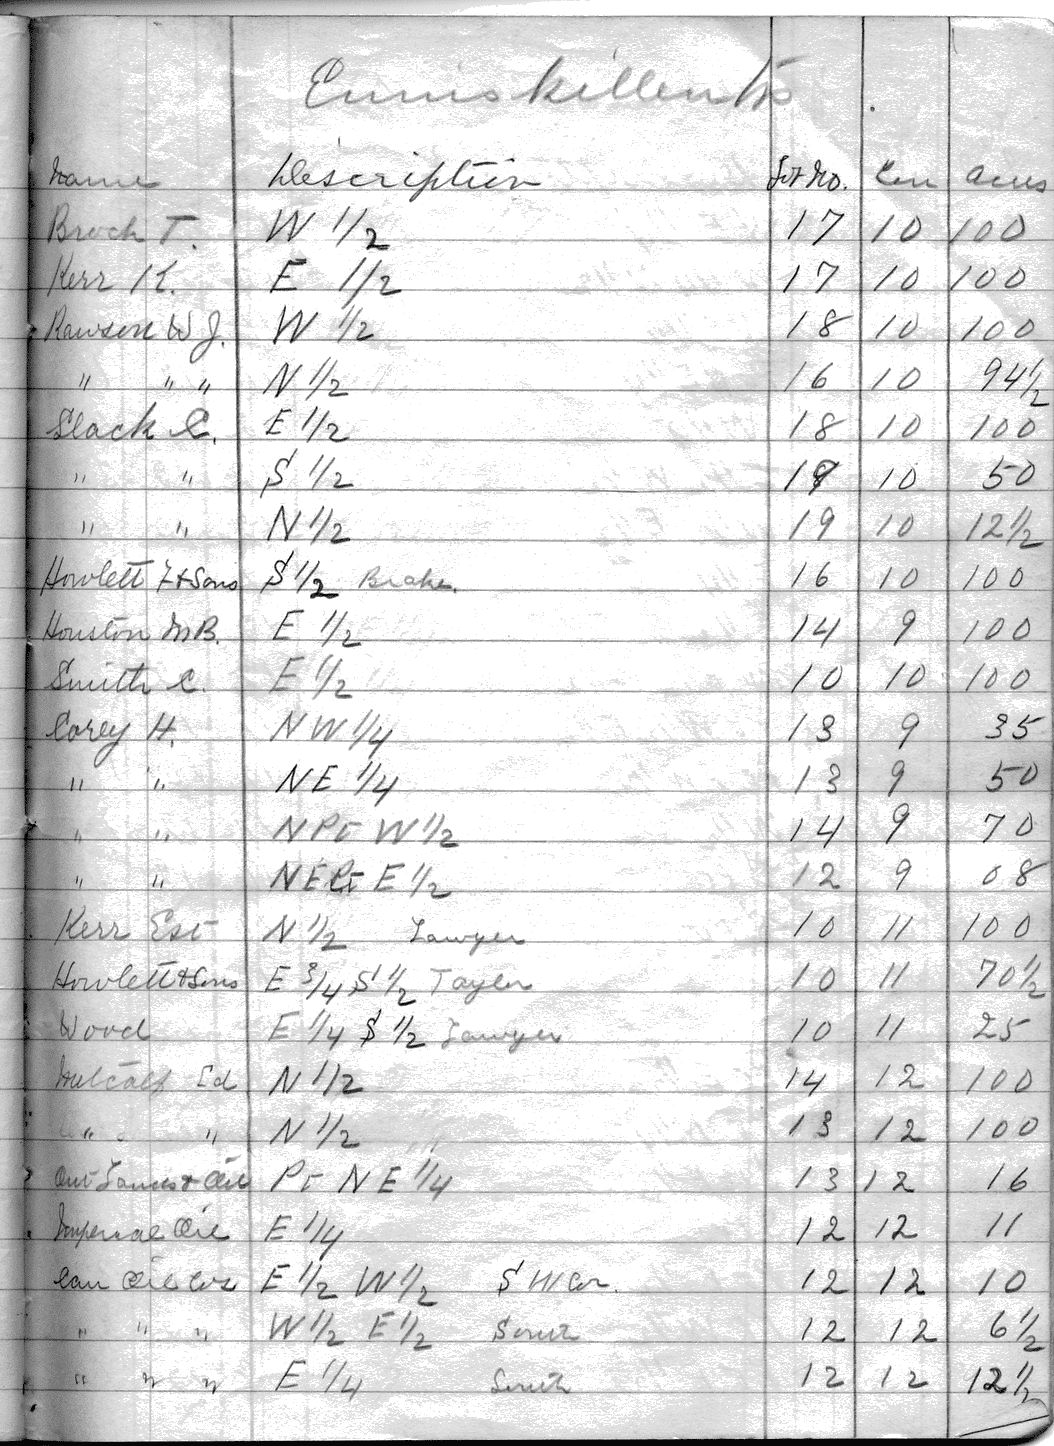 Enniskillen Tp
Name Description Lot No. Con Acres
Brock T. W 1/2 17 10 100
Kerr K. E 1/2 17 10 100
Rawson W J. W 1/2 18 10 100
" " " N 1/2 16 10 94 1/2
Slack C. E 1/2 18 10 100
" " S 1/2 19 10 50
" " N 1/2 19 10 12 1/2
Howlett F & Sons S 1/2 Brake. 16 10 100
Houston M B. E 1/2 14 9 100
Smith C. E 1/2 10 10 100
Corey H. N W 1/4 13 9 35
" " N E 1/4 13 9 50
" " N Pt W 1/2 14 9 70
" " N E Pt E 1/2 12 9 08
Kerr Est N 1/2 Lawyer 10 11 100
Howlett & Sons E 3/4 S 1/2 Taylor 10 11 70 1/2
Wood E 1/4 S 1/2 Lawyer 10 11 25
Metcalf Ed N 1/2 14 12 100
" " N 1/2 13 12 100
Ont Lands & Oil Pt N E 1/4 13 12 16
Imperial Oil E 1/4 12 12 11
Can Oil Cos E 1/2 W 1/2 S W Cor. 12 12 10
" " " W 1/2 E 1/2 South 12 12 6 1/2
" " " E 1/4 South 12 12 12 1/2